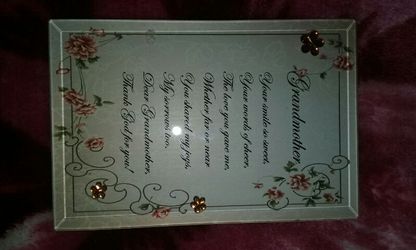 Grandmother,
Your smile so sweet,
Your words of cheer,
The love you gave me,
Whether far or near
You shared my joys,
My sorrows too,
Dear Grandmother,
Thank God for you!